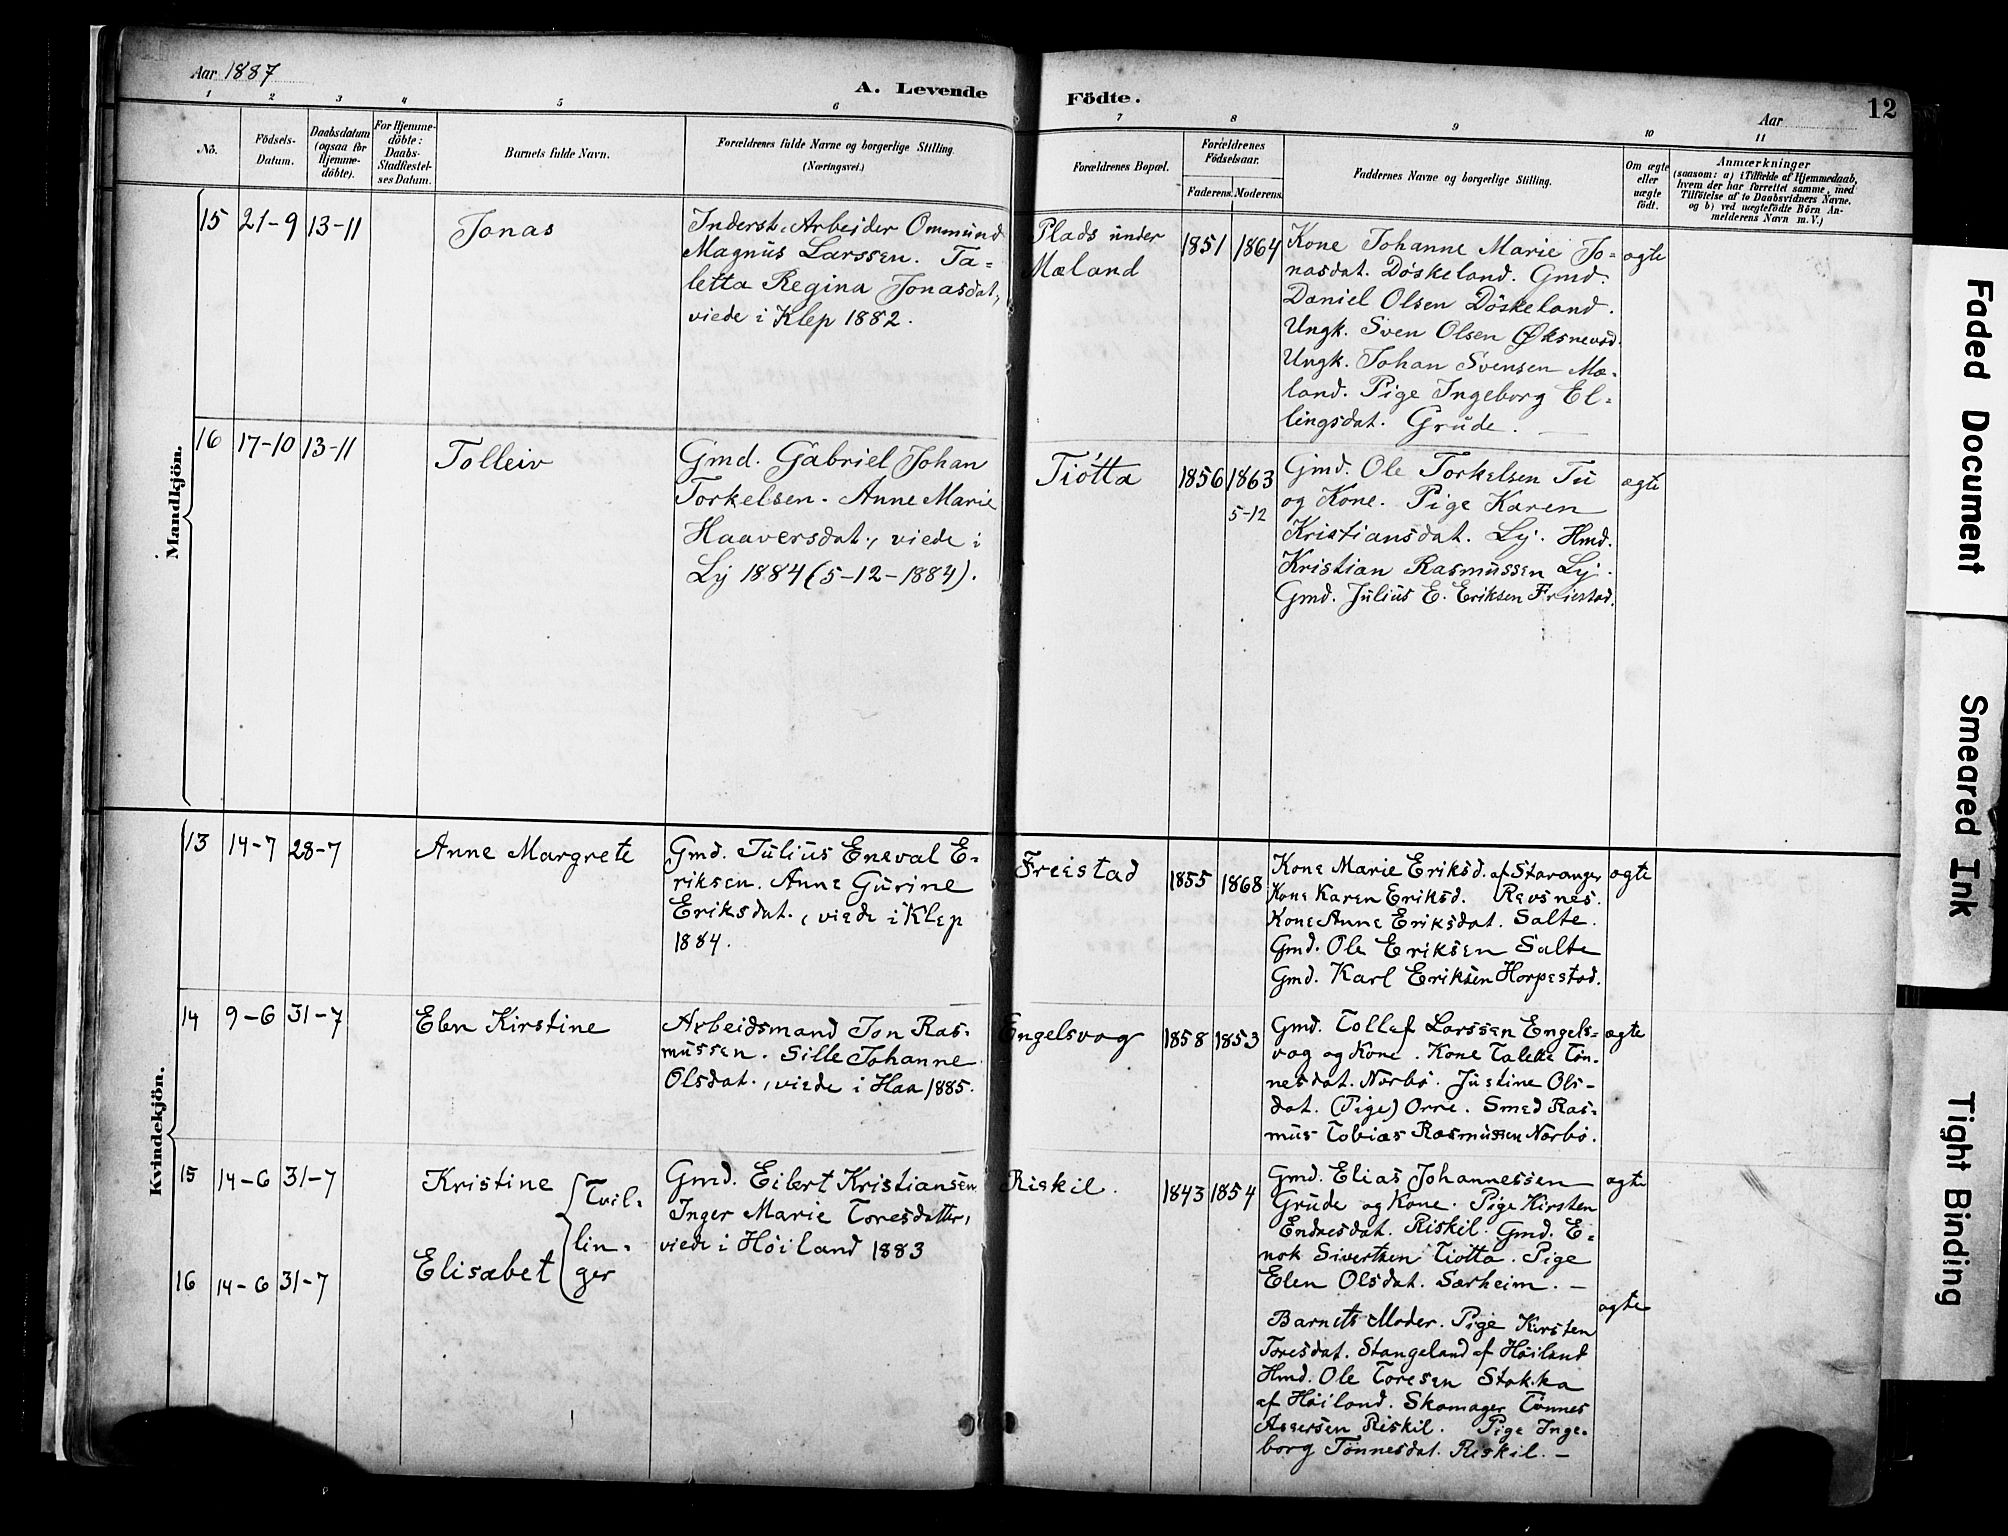 Aar 1887
A. Levende Födte.
Aar
12
1 2 3 4 5 6 7 8 9 10 11
No.
Födsels-Datum.
Daabsdatum (ogsaa for Hjemme-döbte).
For Hjemme-döbte: Daabs-Stadfæstel-ses Datum.
Barnets fulde Navn.
Forældrenes fulde Navne og borgerlige Stilling.
(Næringsvei.)
Forældrenes Bopæl.
Forældrenes Födselsaar.
Faderens. Moderens.
Faddernes Navne og borgerlige Stilling.
Om ægte eller uægte födt.
Anmærkninger
(saasom: a) i Tilfælde af Hjemmedaab,
hvem der har forrettet samme, med
Tilföielse af to Daabsvidners Navne,
og b) ved uægtefödte Börn An-
melderens Navn m. V.)
Mandkjön.
15 21-9 13-11
Jonas
Inderst. Arbejder Ommund
Magnus Larssen. Ta-
letta Regina Jonasdat,
viede i Klep 1882.
Plads under
Mæland
1851 1864
Kone Johanne Marie Jo-
nasdat. Døskeland. Gmd.
Daniel Olsen Døskeland.
Ungk. Sven Olsen Øksnevad.
Ungk. Johan Svensen Mæ-
land. Pige Ingeborg El-
lingsdat. Grude. —
ægte
16 17-10 13-11
Tolleiv
Gmd. Gabriel Johan
Torkelsen. Anne Marie
Haaversdat., viede i
Lij 1884 (5-12-1884).
Tiøtta
1856 1863
5-12
Gmd. Ole Torkelsen Tu
og Kone. Pige Karen
Kristiansdat. Lij. Hmd.
Kristian Rasmussen Lij.
Gmd. Julius E. Eriksen Friestad.
ægte
Kvindekjön.
13 14-7 28-7
Anne Margrete
Gmd. Julius Eneval E-
riksen. Anne Gurine
Eriksdat., viede i Klep
1884.
Freistad
1855 1868
Kone Marie Eriksd. af Stavanger
Kone Karen Eriksd. Revsnes.
Kone Anne Eriksdat. Salte.
Gmd. Ole Eriksen Salte
Gmd. Karl Eriksen Horpestad.
ægte
14 9-6 31-7
Elen Kirstine
Arbeidsmand Jon Ras-
mussen. Sille Johanne
Olsdat., viede i Haa 1885.
Engelsvog
1858 1853
Gmd. Tollef Larssen Engels-
vog og Kone. Kone Talette Tøn-
nesdat. Nærbø. Justine Ols-
dat. (Pige) Orre. Smed Ras-
mus Tobias Rasmussen Nærbø.
ægte
15 14-6 31-7
Kristine
Tvil-
lin-
ger
16 14-6 31-7
Elisabet
Gmd. Eilert Kristiansen
Inger Marie Toresdatter,
viede i Høiland 1883
Riskil.
1843 1854
Gmd. Elias Johannessen
Grude og Kone. Pige Kirsten
Endresdat. Riskil. Gmd. E-
nok Sivertsen Tiøtta. Pige
Elen Olsdat. Særheim. —
ægte
Barnets Moder. Pige Kirsten
Toresdat. Stangeland af Høiland
Hmd. Ole Toresen Stokka
af Høiland. Skomager Tønnes
Assersen Riskil. Pige Inge-
borg Tønnesdat. Riskil. —
ægte
Faded Document
Smeared Ink
Tight Binding